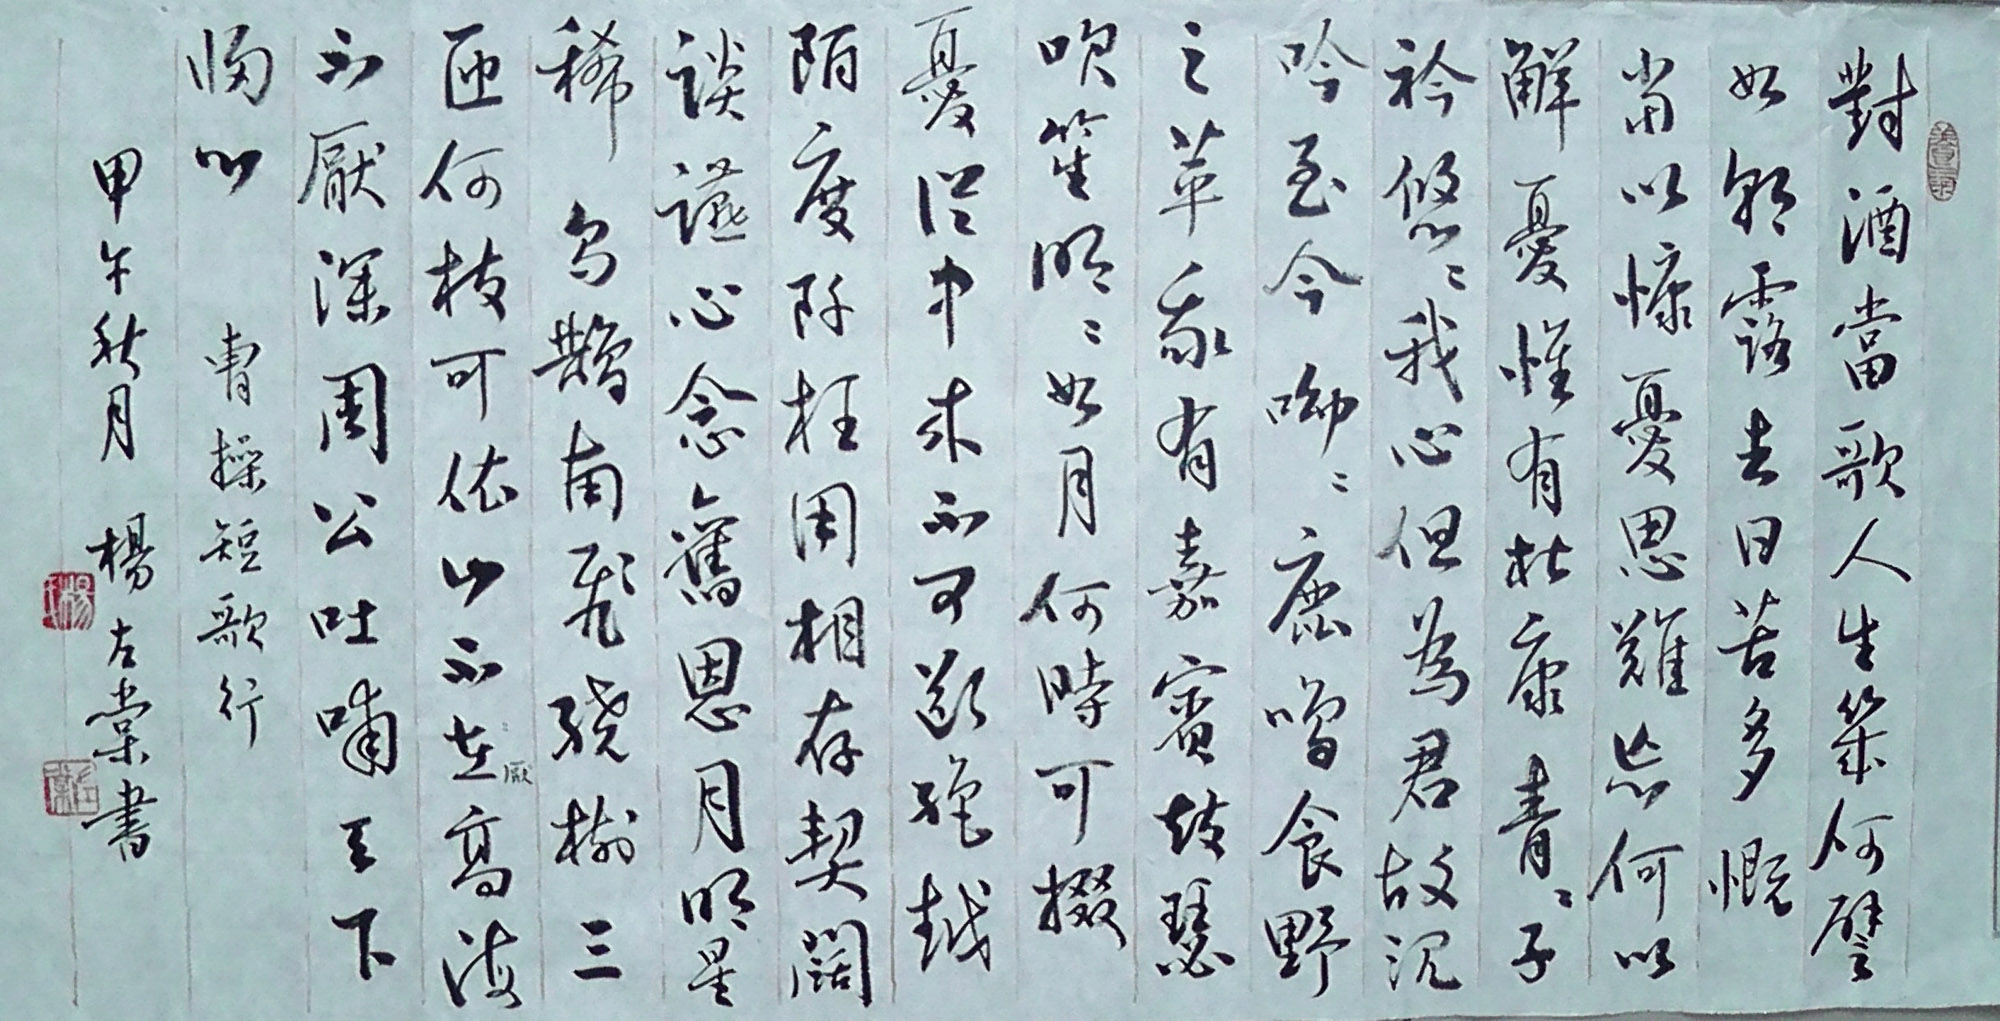 對酒當歌人生幾何譬
如朝露去日苦多慨
當以慷憂思難忘何以
解憂惟有杜康青〻子
衿悠〻我心但為君故沉
吟至今呦〻鹿鳴食野
之苹我有嘉賓鼓瑟
吹笙明〻如月何時可掇
憂從中來不可斷絕越
陌度阡枉用相存契闊
談讌心念舊恩月明星
稀烏鵲南飛繞樹三
匝何枝可依山不在高海
厭
不厭深周公吐哺天下
歸心 曹操短歌行
甲午秋月 楊左棠書